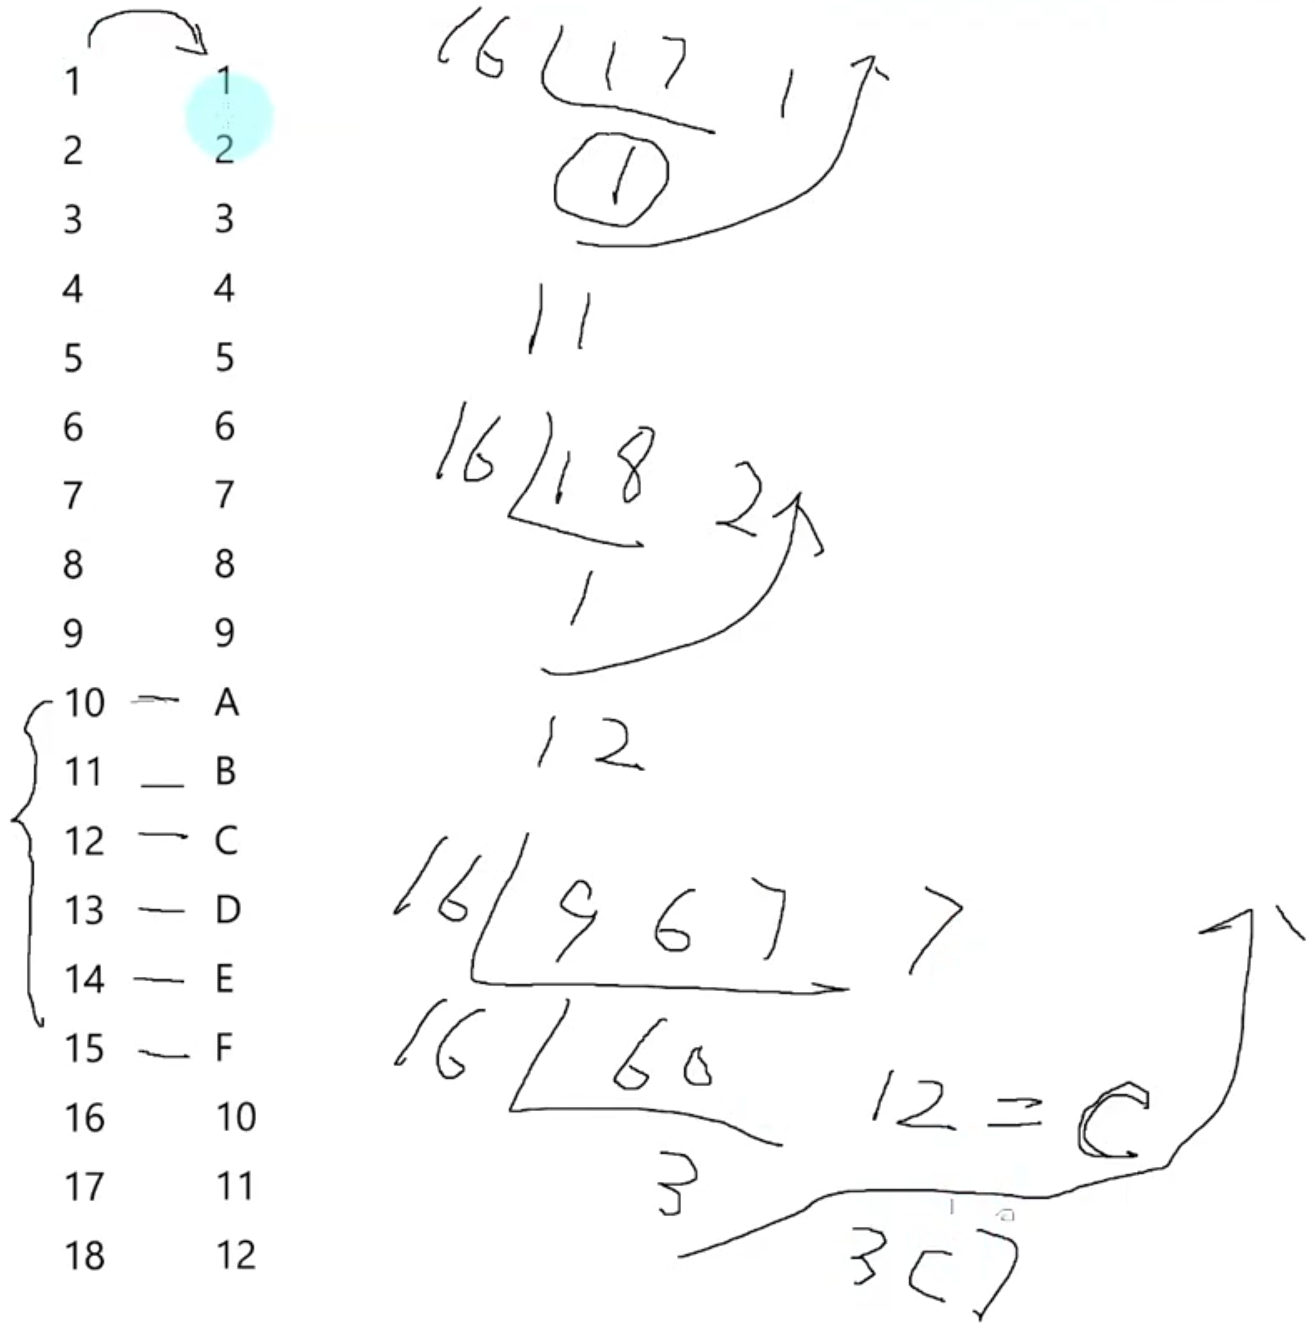 1 1
2 2
3 3
4 4
5 5
6 6
7 7
8 8
9 9
10 — A
11 — B
12 — C
13 — D
14 — E
15 — F
16 10
17 11
18 12
16 17 1
1
11
16 18 2
1
12
16 967 7
16 60 12 = C
3
3C7